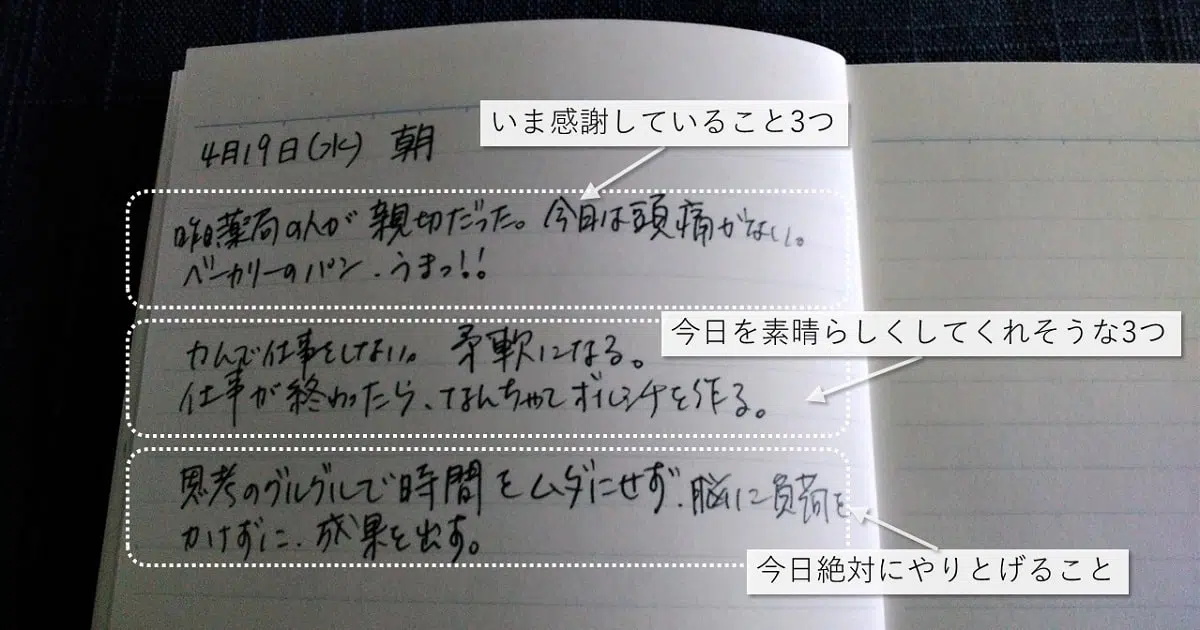 いま感謝していること3つ
4月19日(水) 朝
昨日薬局の人が親切だった。今日は頭痛がない。
ベーカリーのパン、うまっ!!
今日を素晴らしくしてくれそうな3つ
力んで仕事をしない。 柔軟になる。
仕事が終わったら、なんちゃってボルシチを作る。
思考のグルグルで時間をムダにせず、脳に負荷を
かけずに、成果を出す。
今日絶対にやりとげること